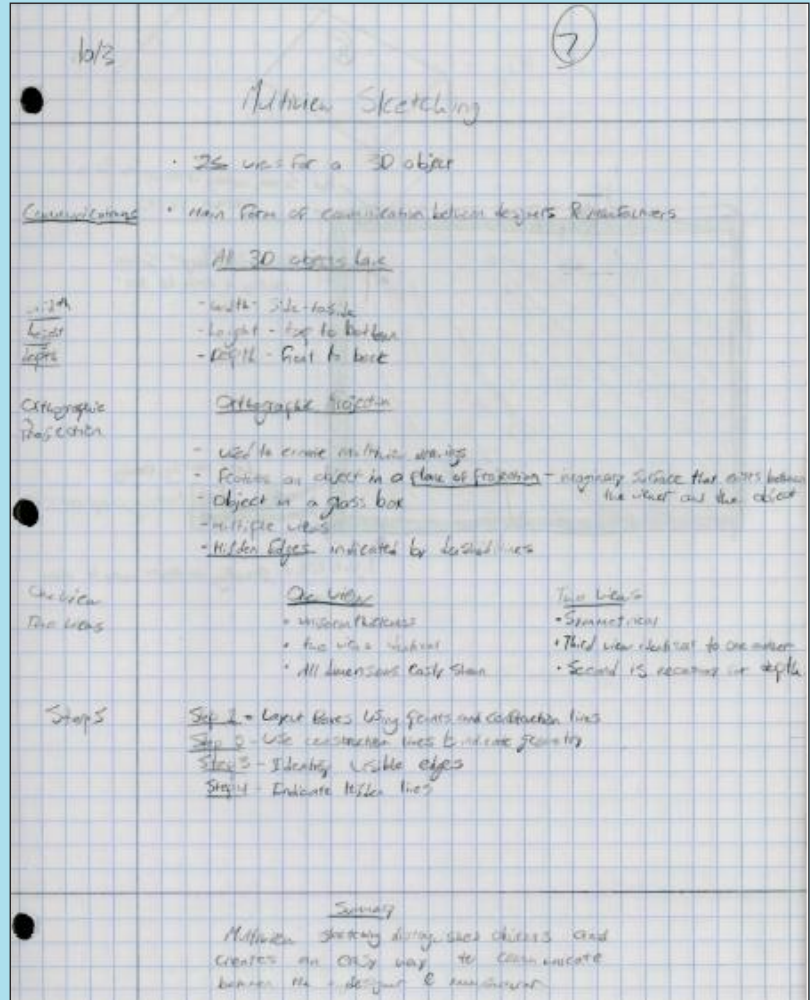 10/3
7
Multiview Sketching
• views for a 3D object
Communications • Main form of communication between designers & manufacturers
All 3D objects have
width - width - side-to-side
height - height - top to bottom
depth - Depth - front to back
Orthographic Orthographic Projection
Projection
- used to create multiview drawings
- Features an object in a plane of projection - imaginary surface that exists between
the viewer and the object
- Object in a glass box
- Multiple views
- Hidden Edges indicated by dashed lines
One view One view Two views
Two views • uniform thickness • Symmetrical
• two views identical • Third view identical to one another
• All dimensions easily shown • Second is necessary for depth
Steps Step 1 - Layout Boxes using points and construction lines
Step - Use construction lines to indicate geometry
Step 3 - Identify visible edges
Step 4 - Indicate hidden lines
Summary
Multiview sketching and
creates an easy way to communicate
between the designer & manufacturer